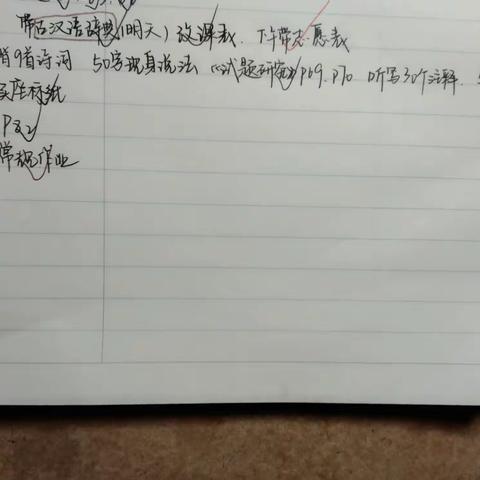 带古汉语辞典(明天) 放课表. 下午带志愿表
背9首诗词 50字现身说法 《试题研究》P69.P70 听写30个注释.
座标纸
P82
常规作业